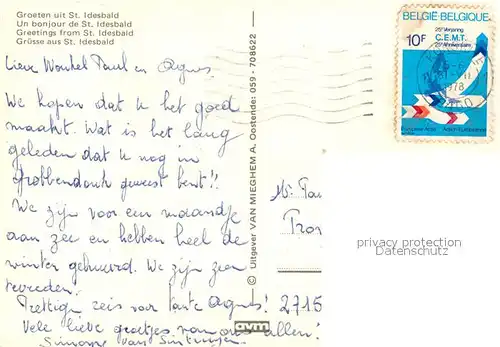 Groeten uit St. Idesbald
Un bonjour de St. Idesbald
Greetings from St. Idesbald
Grüsse aus St. Idesbald
Lieve Woutel Paul en Agnes
We hopen dat u het goed
maakt. Wat is het lang
geleden dat u nog in
grobbendonk geweest bent!!
We zijn voor een maandje
aan zee en hebben heel de
winter gehuurd. We zijn zeer
tevreden.
Prettige reis voor tante Agnes!
Vele lieve groetjes van ons allen!
Simonne van
© Uitgever VAN MIEGHEM A. Oostende: 059 - 708622
avm
BELGIË BELGIQUE
10F
25e Verjaring
C.E.M.T.
25e Anniversaire
1978
Mr. Pau
2715
privacy protection
Datenschutz